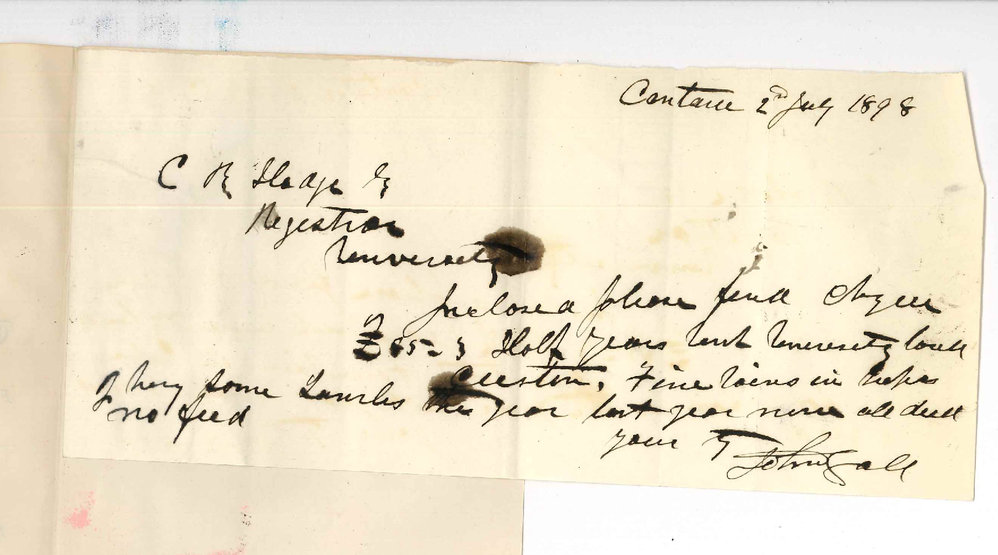 2nd July 1898
C R Hodge Esq
Registrar
University
Inclosed please find Cheque
Half Years Rent University land
Fine rains in
I have some Lambs this year last year none all died
no feed
Yours
John Gall